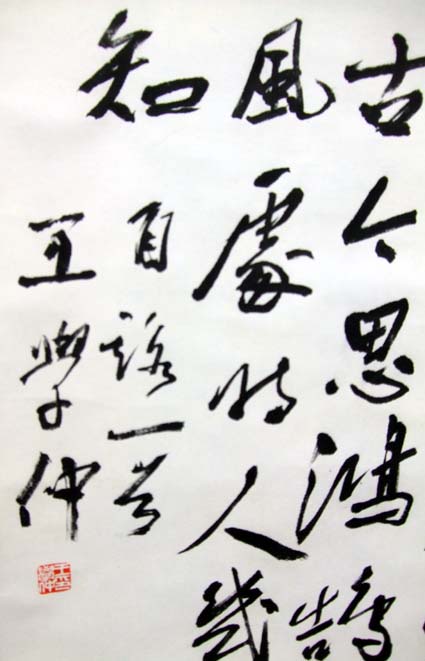 古今思鴻鵠
風處時人幾
知
自一首
王學仲